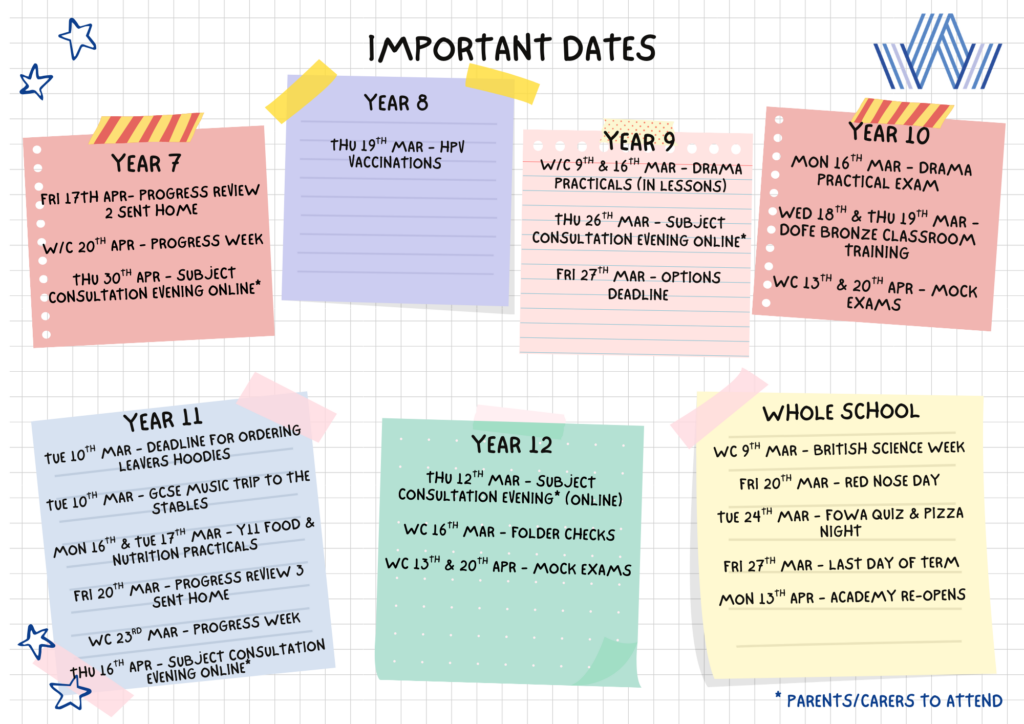 IMPORTANT DATES
YEAR 7
FRI 17TH APR- PROGRESS REVIEW
2 SENT HOME
W/C 20TH APR - PROGRESS WEEK
THU 30TH APR - SUBJECT
CONSULTATION EVENING ONLINE*
YEAR 8
THU 19TH MAR - HPV
VACCINATIONS
YEAR 9
W/C 9TH & 16TH MAR - DRAMA
PRACTICALS (IN LESSONS)
THU 26TH MAR - SUBJECT
CONSULTATION EVENING ONLINE*
FRI 27TH MAR - OPTIONS
DEADLINE
YEAR 10
MON 16TH MAR - DRAMA
PRACTICAL EXAM
WED 18TH & THU 19TH MAR -
DOFE BRONZE CLASSROOM
TRAINING
WC 13TH & 20TH APR - MOCK
EXAMS
YEAR 11
TUE 10TH MAR - DEADLINE FOR ORDERING
LEAVERS HOODIES
TUE 10TH MAR - GCSE MUSIC TRIP TO THE
STABLES
MON 16TH & TUE 17TH MAR - Y11 FOOD &
NUTRITION PRACTICALS
FRI 20TH MAR - PROGRESS REVIEW 3
SENT HOME
WC 23RD MAR - PROGRESS WEEK
THU 16TH APR - SUBJECT CONSULTATION
EVENING ONLINE*
YEAR 12
THU 12TH MAR - SUBJECT
CONSULTATION EVENING* (ONLINE)
WC 16TH MAR - FOLDER CHECKS
WC 13TH & 20TH APR - MOCK EXAMS
WHOLE SCHOOL
WC 9TH MAR - BRITISH SCIENCE WEEK
FRI 20TH MAR - RED NOSE DAY
TUE 24TH MAR - FOWA QUIZ & PIZZA
NIGHT
FRI 27TH MAR - LAST DAY OF TERM
MON 13TH APR - ACADEMY RE-OPENS
* PARENTS/CARERS TO ATTEND